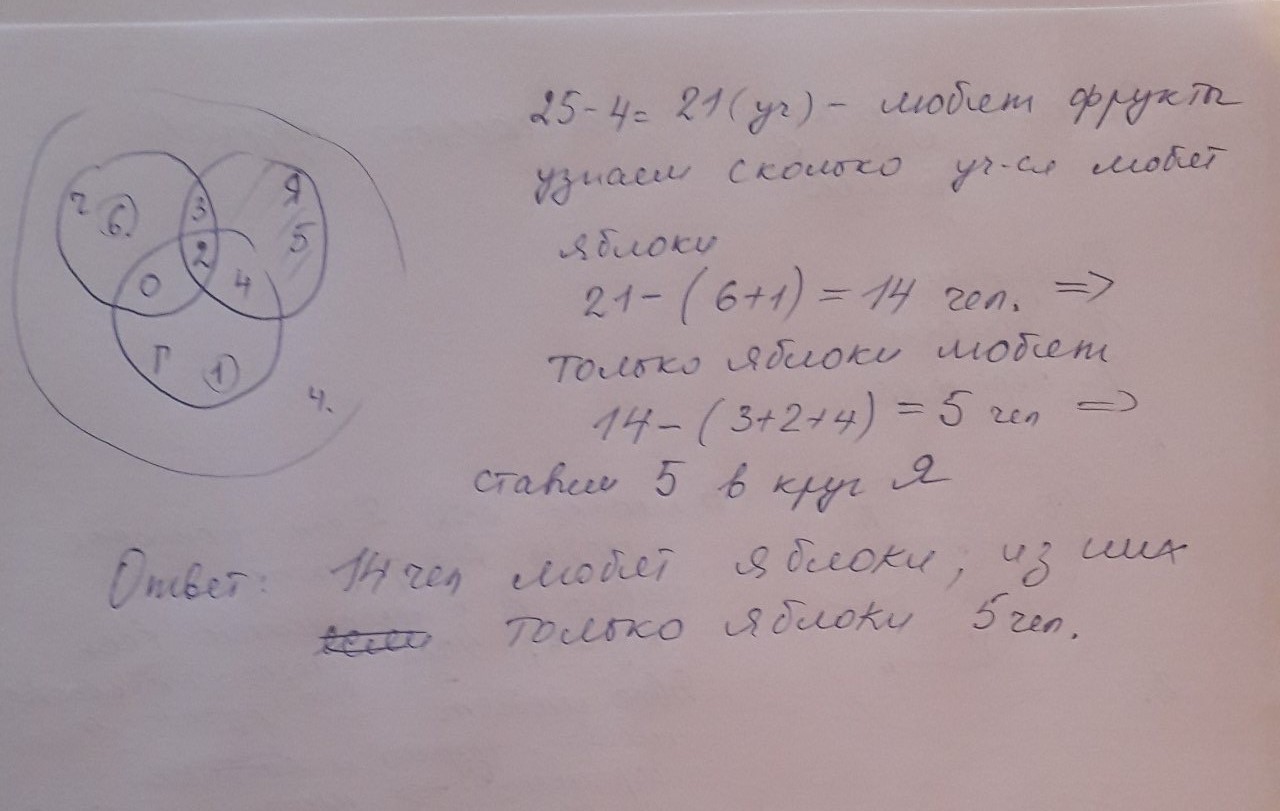 25-4= 21(уч) - любят фрукты
узнаем сколько уч-ся любят
яблоки
21-(6+1)=14 чел. =>
только яблоки любят
14-(3+2+4)=5 чел =>
ставим 5 в круг Я
Ответ: 14 чел любят яблоки, из них
только яблоки 5 чел.
6
3
Я
5
2
0
4
Г
1
4.